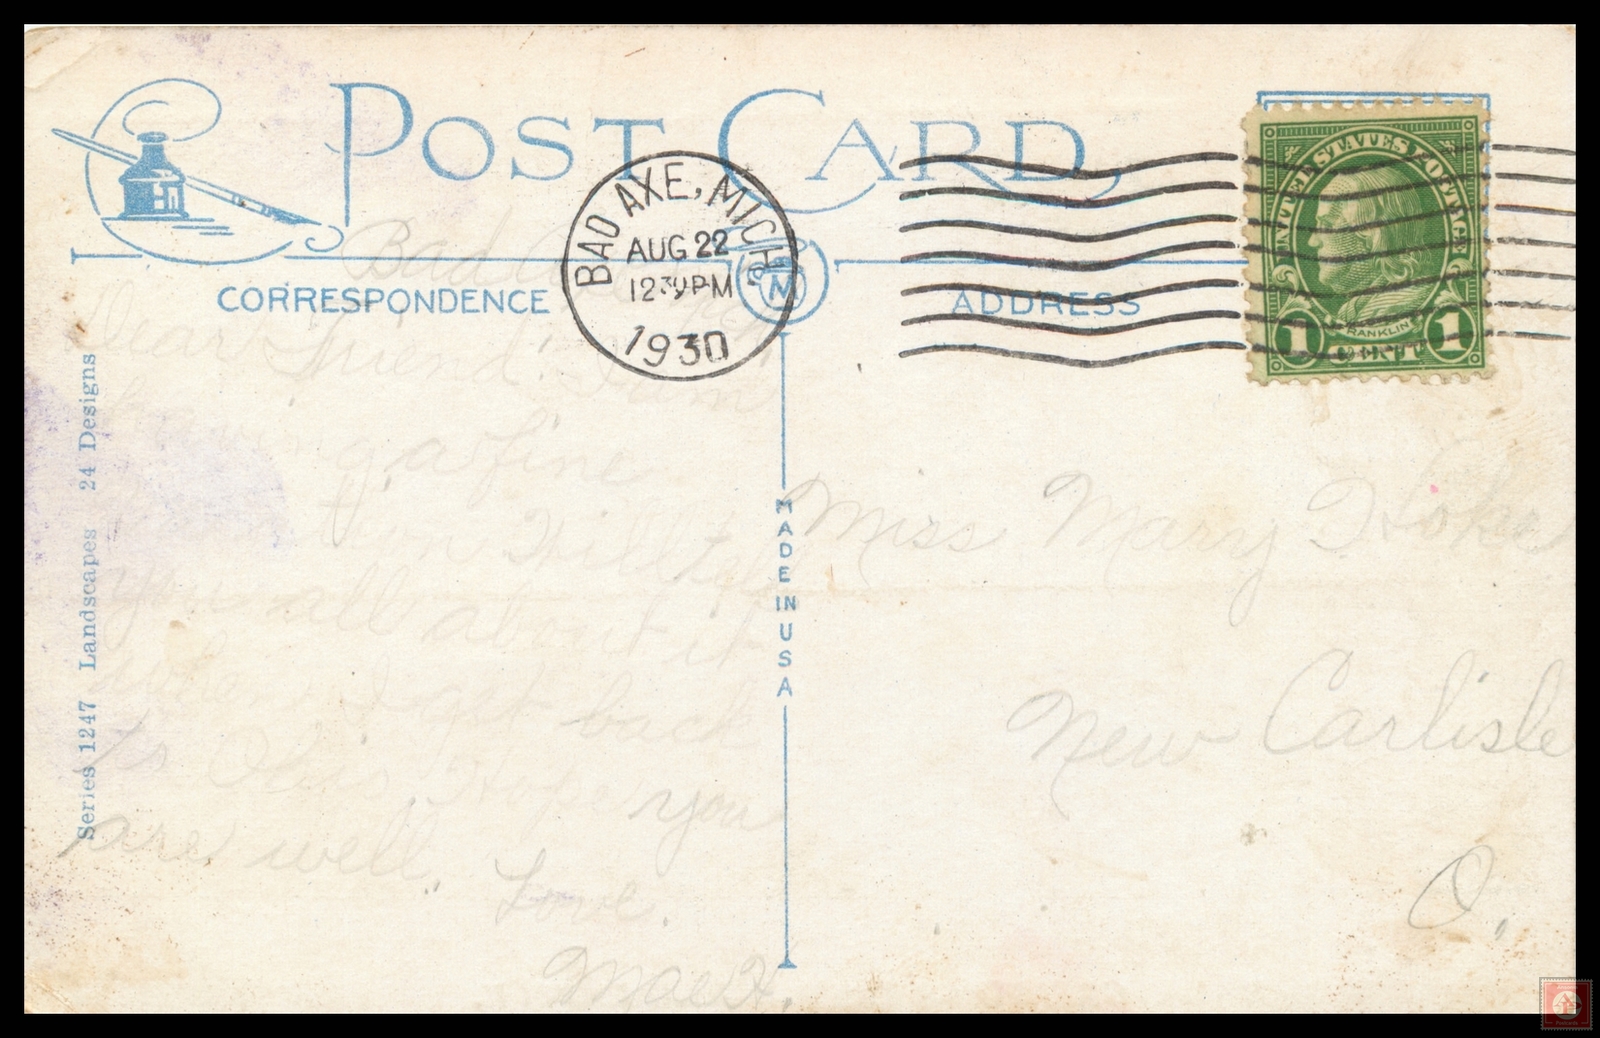 POST CARD
BAD AXE, MICH.
AUG 22
12 30 PM
1930
UNITED STATES POSTAGE
FRANKLIN
1 CENT 1
CORRESPONDENCE
ADDRESS
Series 1247 Landscapes 24 Designs
MADE IN USA
Bad
Dear Friend: I am
having a fine
Will tell
you all about it
when I get back
to Ohio. Hope you
are well.
Love
Mae H.
Miss Mary
New Carlisle
O.